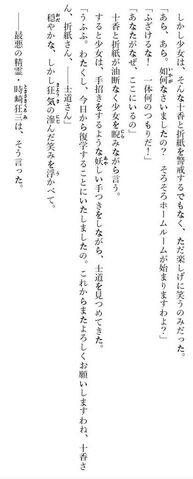 しかし少女は、そんな十香と折紙を警戒するでもなく、ただ楽しげに笑うのみだった。
「あら、あら。如何なさいましたの? そろそろホームルームが始まりますわよ?」
「ふざけるな! 一体何のつもりだ!」
「あなたがなぜ、ここにいるの」
十香と折紙が油断なく少女を睨みながら言う。
すると少女は、手招きをするような妖しい手つきをしながら、士道を見つめてきた。
「うふふ。わたくし、今日から復学することにいたしましたの。これからまたよろしくお願いしますわね、十香さ
ん、折紙さん、——士道さん」
穏やかな、しかし狂気の滲んだ笑みを浮かべて。
——最悪の精霊・時崎狂三は、そう言った。